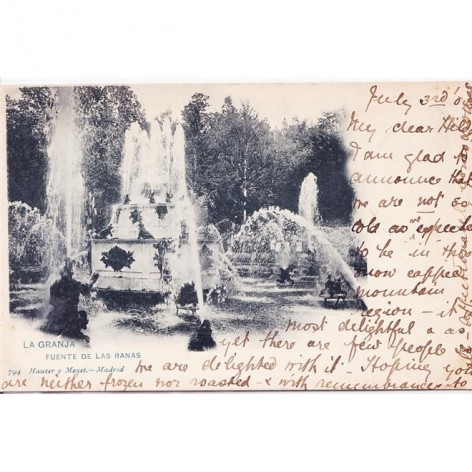 July 3rd '0
My dear Hil
I am glad to
announce that
we are not so
cold as we expected
to be in this
snow capped
mountain
region – it
most delightful & as
yet there are few people
we are delighted with it – Hoping you
are neither frozen nor roasted – & with remembrances to
LA GRANJA
FUENTE DE LAS RANAS
794 Hauser y Menet.—Madrid